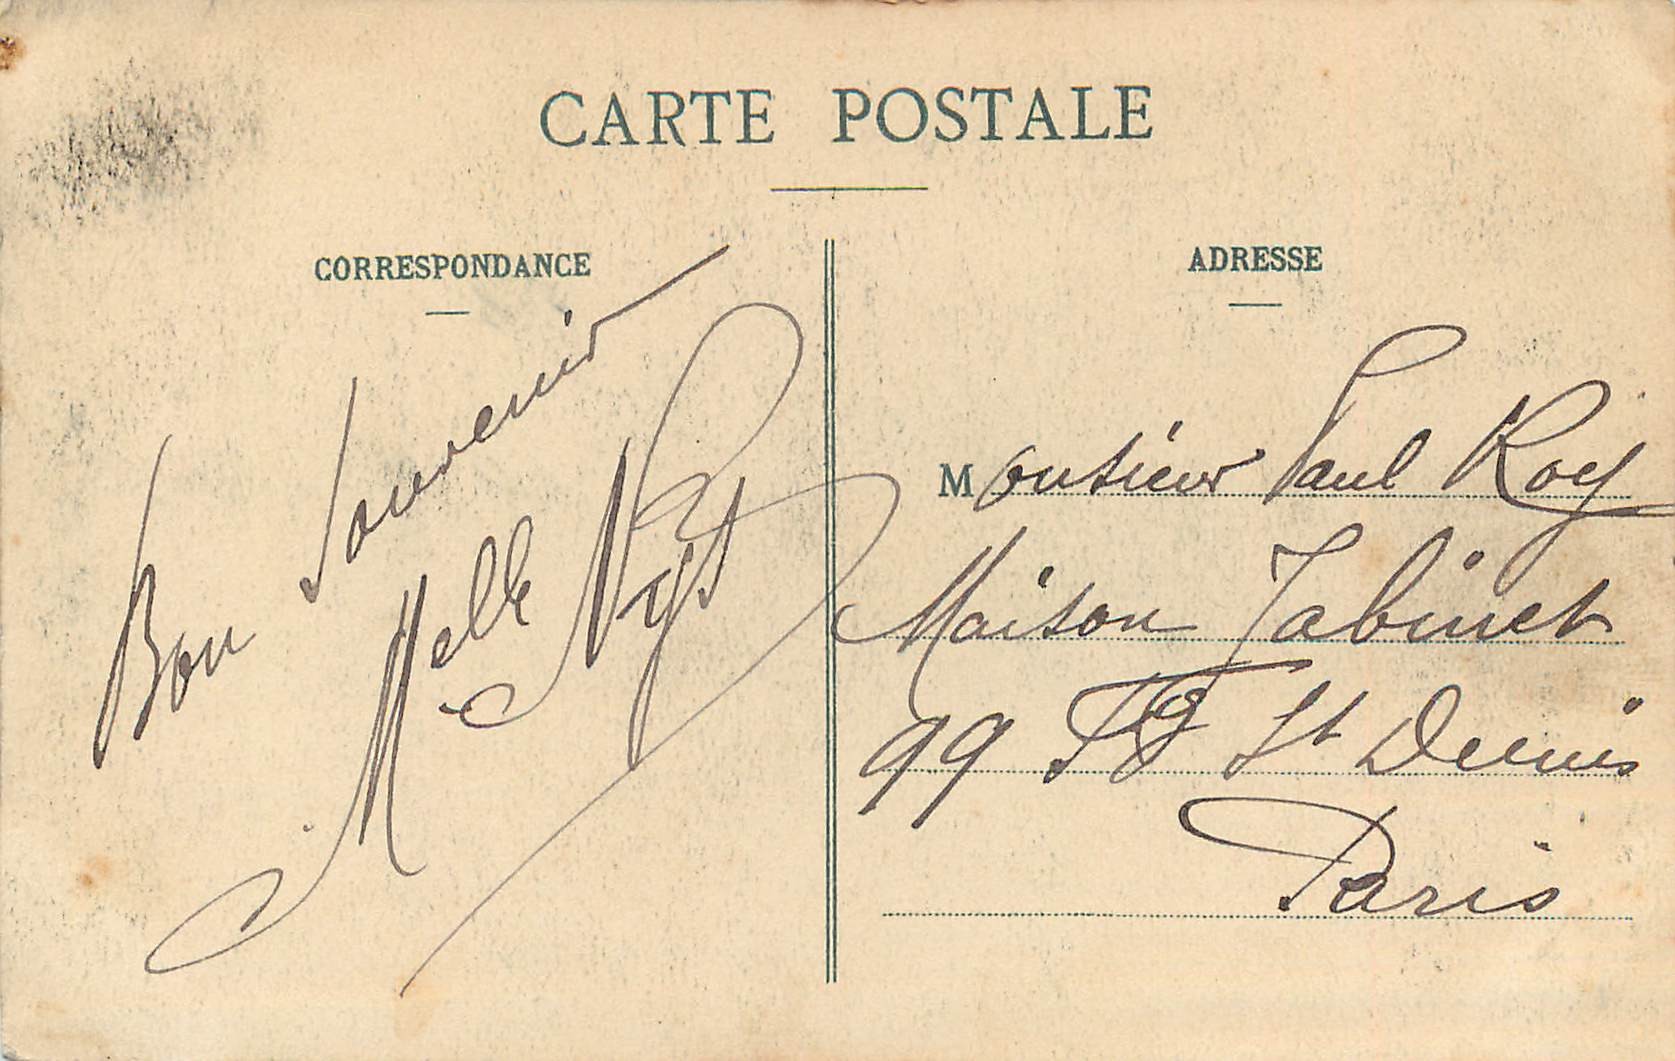 CARTE POSTALE
CORRESPONDANCE
Bon Souvenir
Melle Nyst
ADRESSE
Monsieur Paul Roy
Maison Jabinet
99 Fg St Denis
Paris